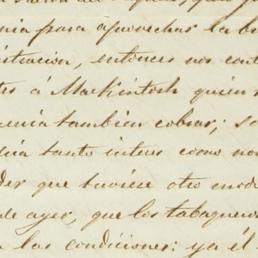 nia para aprovechar la bu
istracion, entonces nos cont
es á Mackintosh quien
enia tambien cobrar; so
dia tanto interes como no
der que tuviese otro mod
de ayer, que los tabaquero
las condiciones: ya él